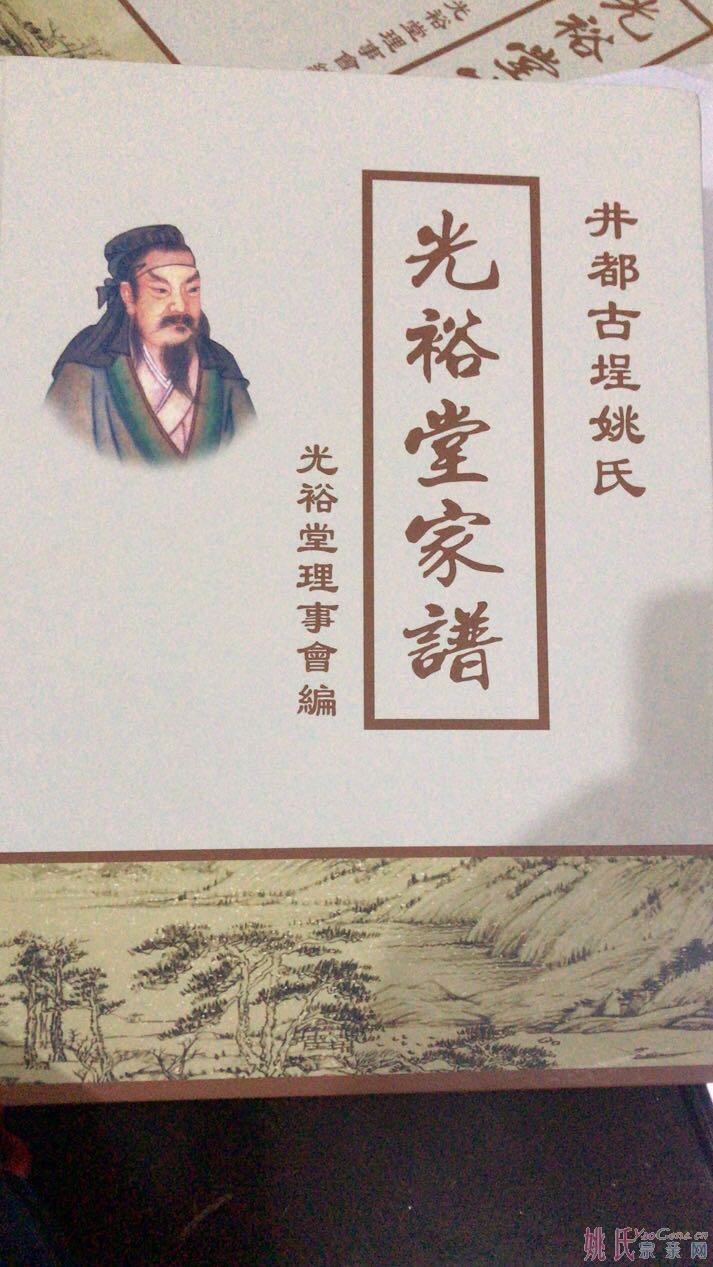 井都古埕姚氏
光裕堂家譜
光裕堂理事會編
光裕堂
光裕堂理事會編
姚氏宗亲网
YaoGens.cn